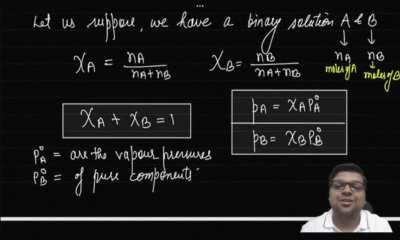 Let us suppose, we have a binary solution A & B
χA = nA / nA+nB
χB = nB / nA+nB
nA nB
moles of A
moles of B
χA + χB = 1
pA = χA p°A
pB = χB p°B
p°A = are the vapour pressures
p°B = of pure components